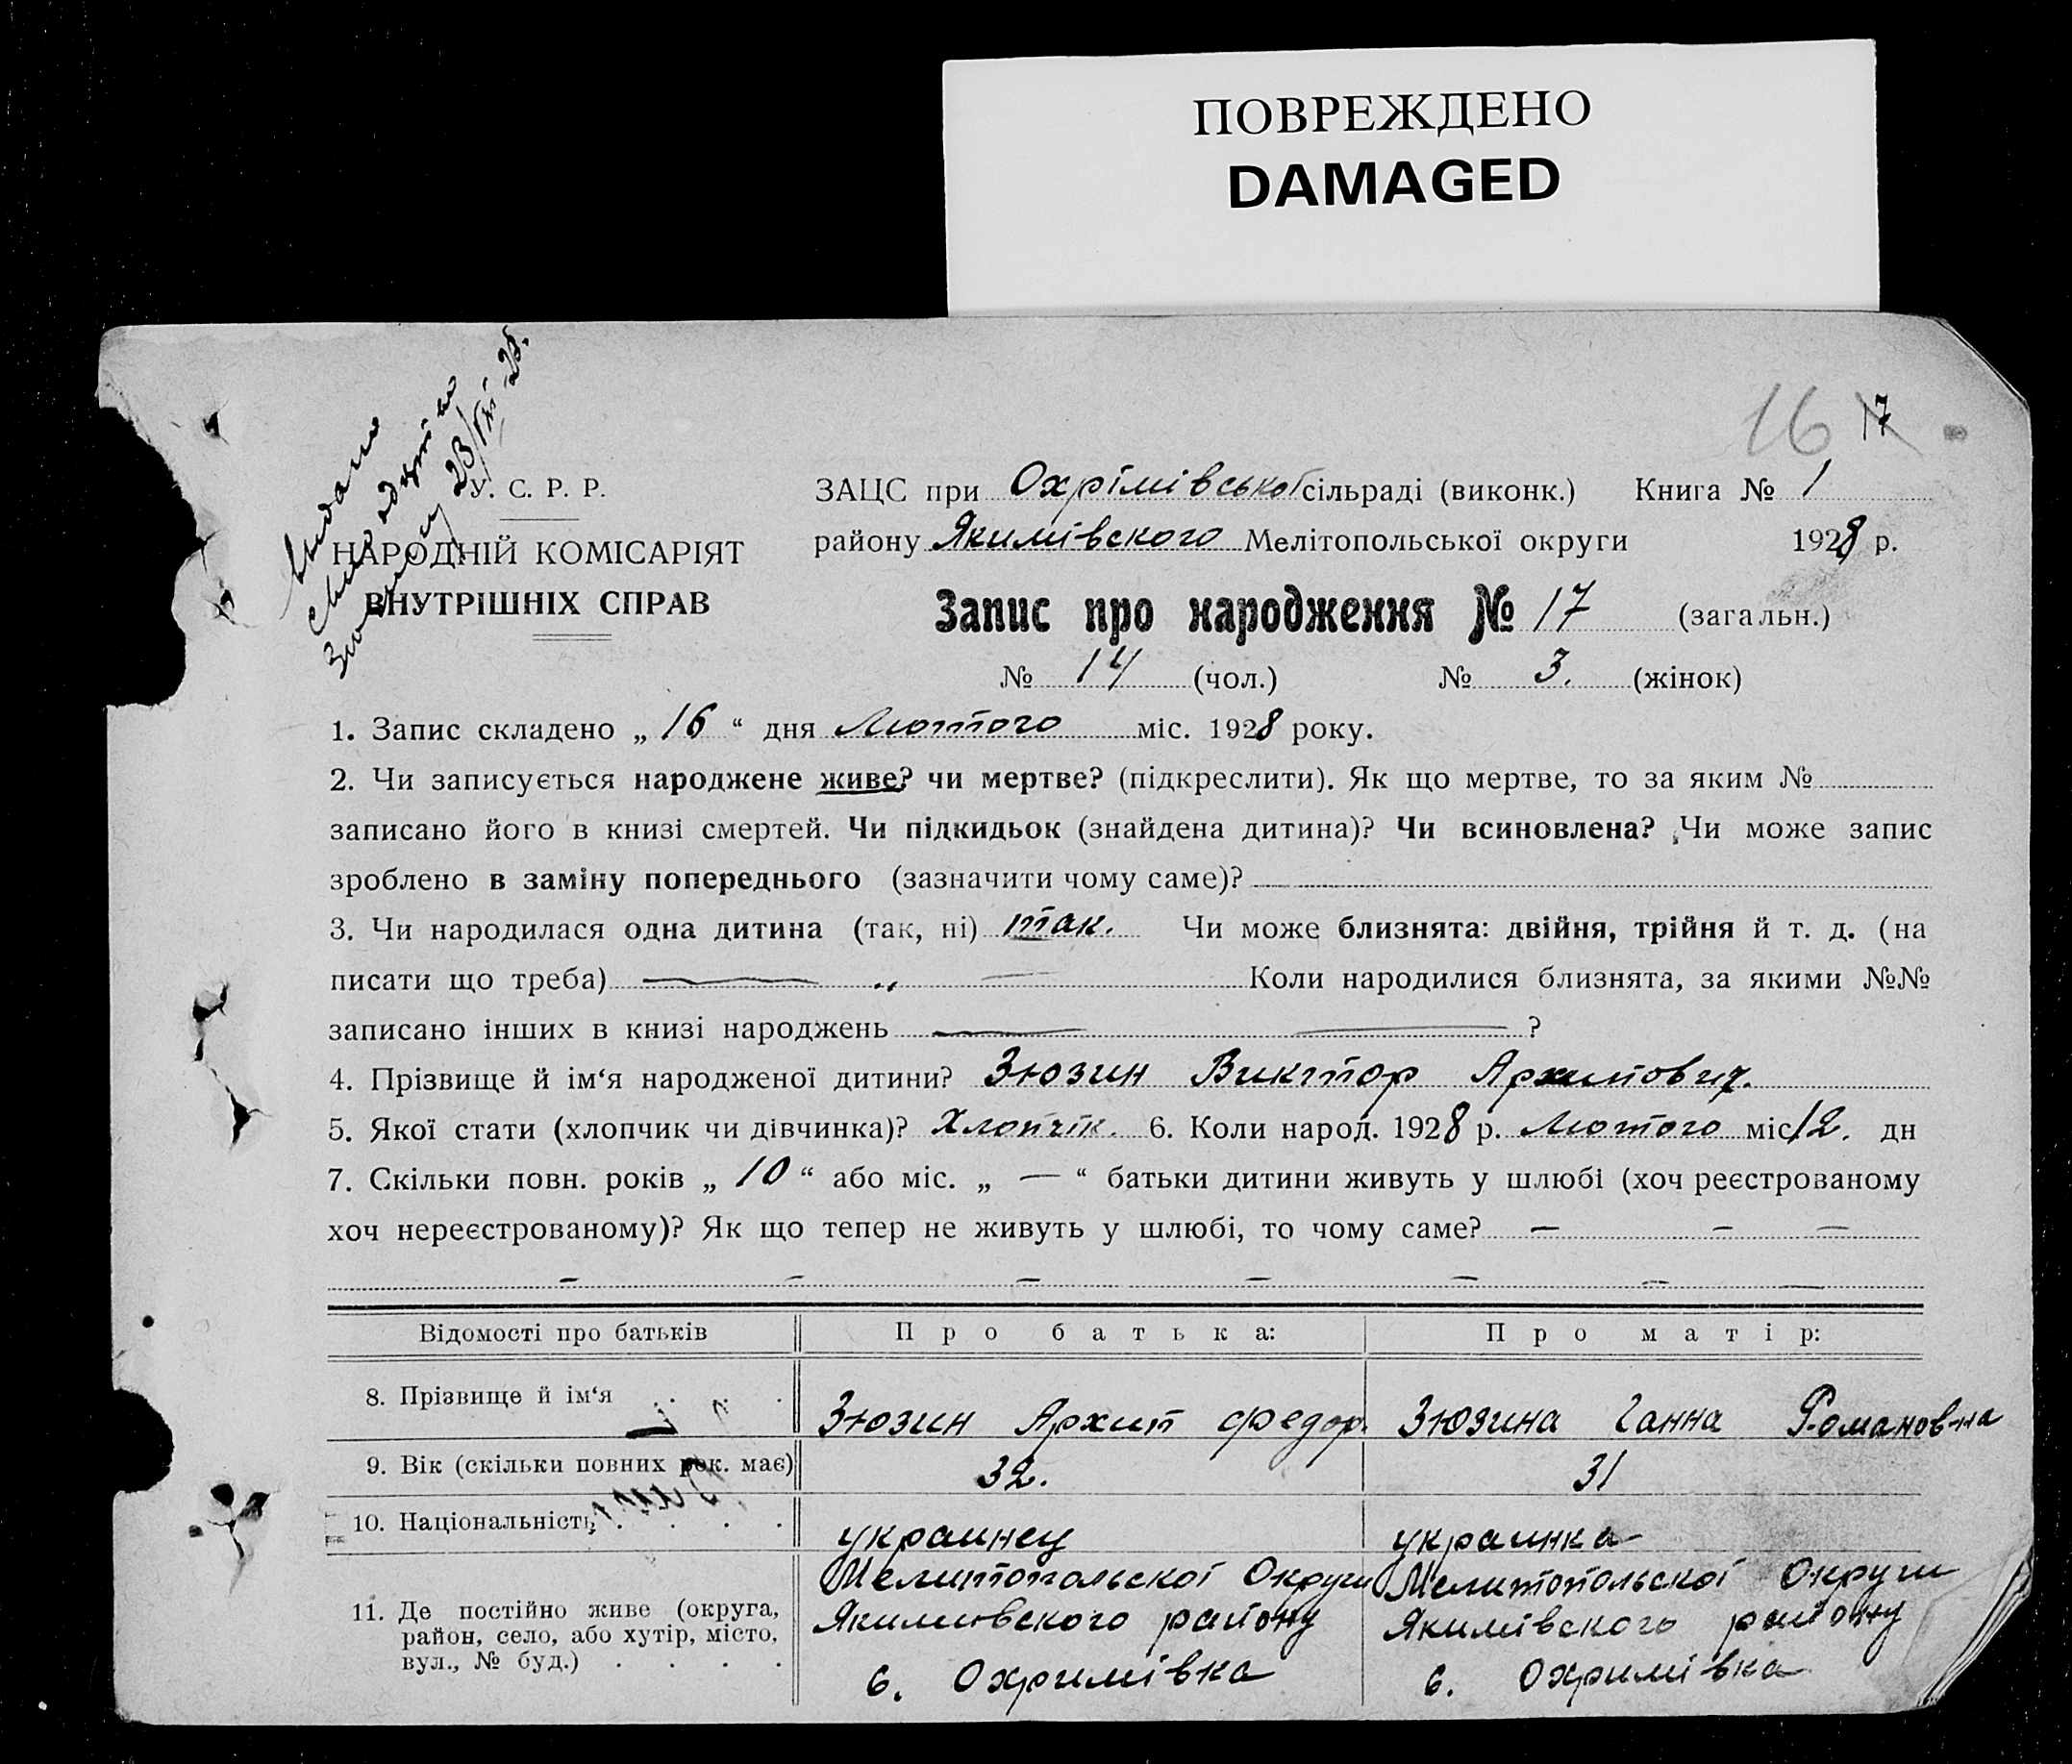 ПОВРЕЖДЕНО
DAMAGED
16 17
Видано
23/VIII-28.
У. С. Р. Р.
НАРОДНІЙ КОМІСАРІЯТ
ВНУТРІШНІХ СПРАВ
ЗАЦС при Охрімівської сільраді (виконк.) Книга № 1
району Якимівского Мелітопольської округи 1928 р.
Запис про народження № 17 (загальн.)
№ 14 (чол.) № 3. (жінок)
1. Запис складено „ 16 “ дня Лютого міс. 1928 року.
2. Чи записується народжене живе? чи мертве? (підкреслити). Як що мертве, то за яким №
записано його в книзі смертей. Чи підкидьок (знайдена дитина)? Чи всиновлена? Чи може запис
зроблено в заміну попереднього (зазначити чому саме)?
3. Чи народилася одна дитина (так, ні) так. Чи може близнята: двійня, трійня й т. д. (на
писати що треба) — „ — Коли народилися близнята, за якими №№
записано інших в книзі народжень — — ?
4. Прізвище й ім‘я народженої дитини? Зюзин Виктор Архипович.
5. Якої стати (хлопчик чи дівчинка)? Хлопчік. 6. Коли народ. 1928 р. Лютого міс 12. дн
7. Скільки повн. років „ 10 “ або міс. „ — “ батьки дитини живуть у шлюбі (хоч реєстрованому
хоч нереєстрованому)? Як що тепер не живуть у шлюбі, то чому саме? — — —
— — — — — — —
Відомості про батьків Про батька: Про матір:
8. Прізвище й ім‘я . . . Зюзин Архип Федор. Зюзина Ганна Романовна
9. Вік (скільки повних рок. має) 32. 31
10. Національність . . . . украинец украинка
11. Де постійно живе (округа, район, село, або хутір, місто, вул., № буд.) . . . .
Мелитопольскої Округи Якимовского району с. Охримівка
Мелитопольскої Округи Якимівского району с. Охримівка